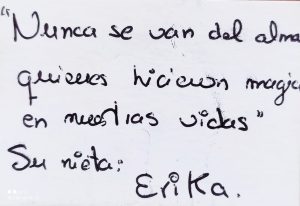 "Nunca se van del alma
quienes hicieron magia
en nuestras vidas"
Su nieta:
Erika.